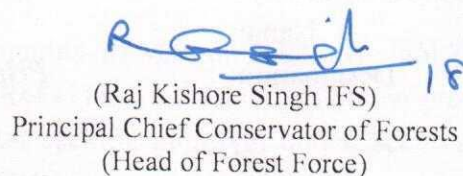 18
(Raj Kishore Singh IFS)
Principal Chief Conservator of Forests
(Head of Forest Force)